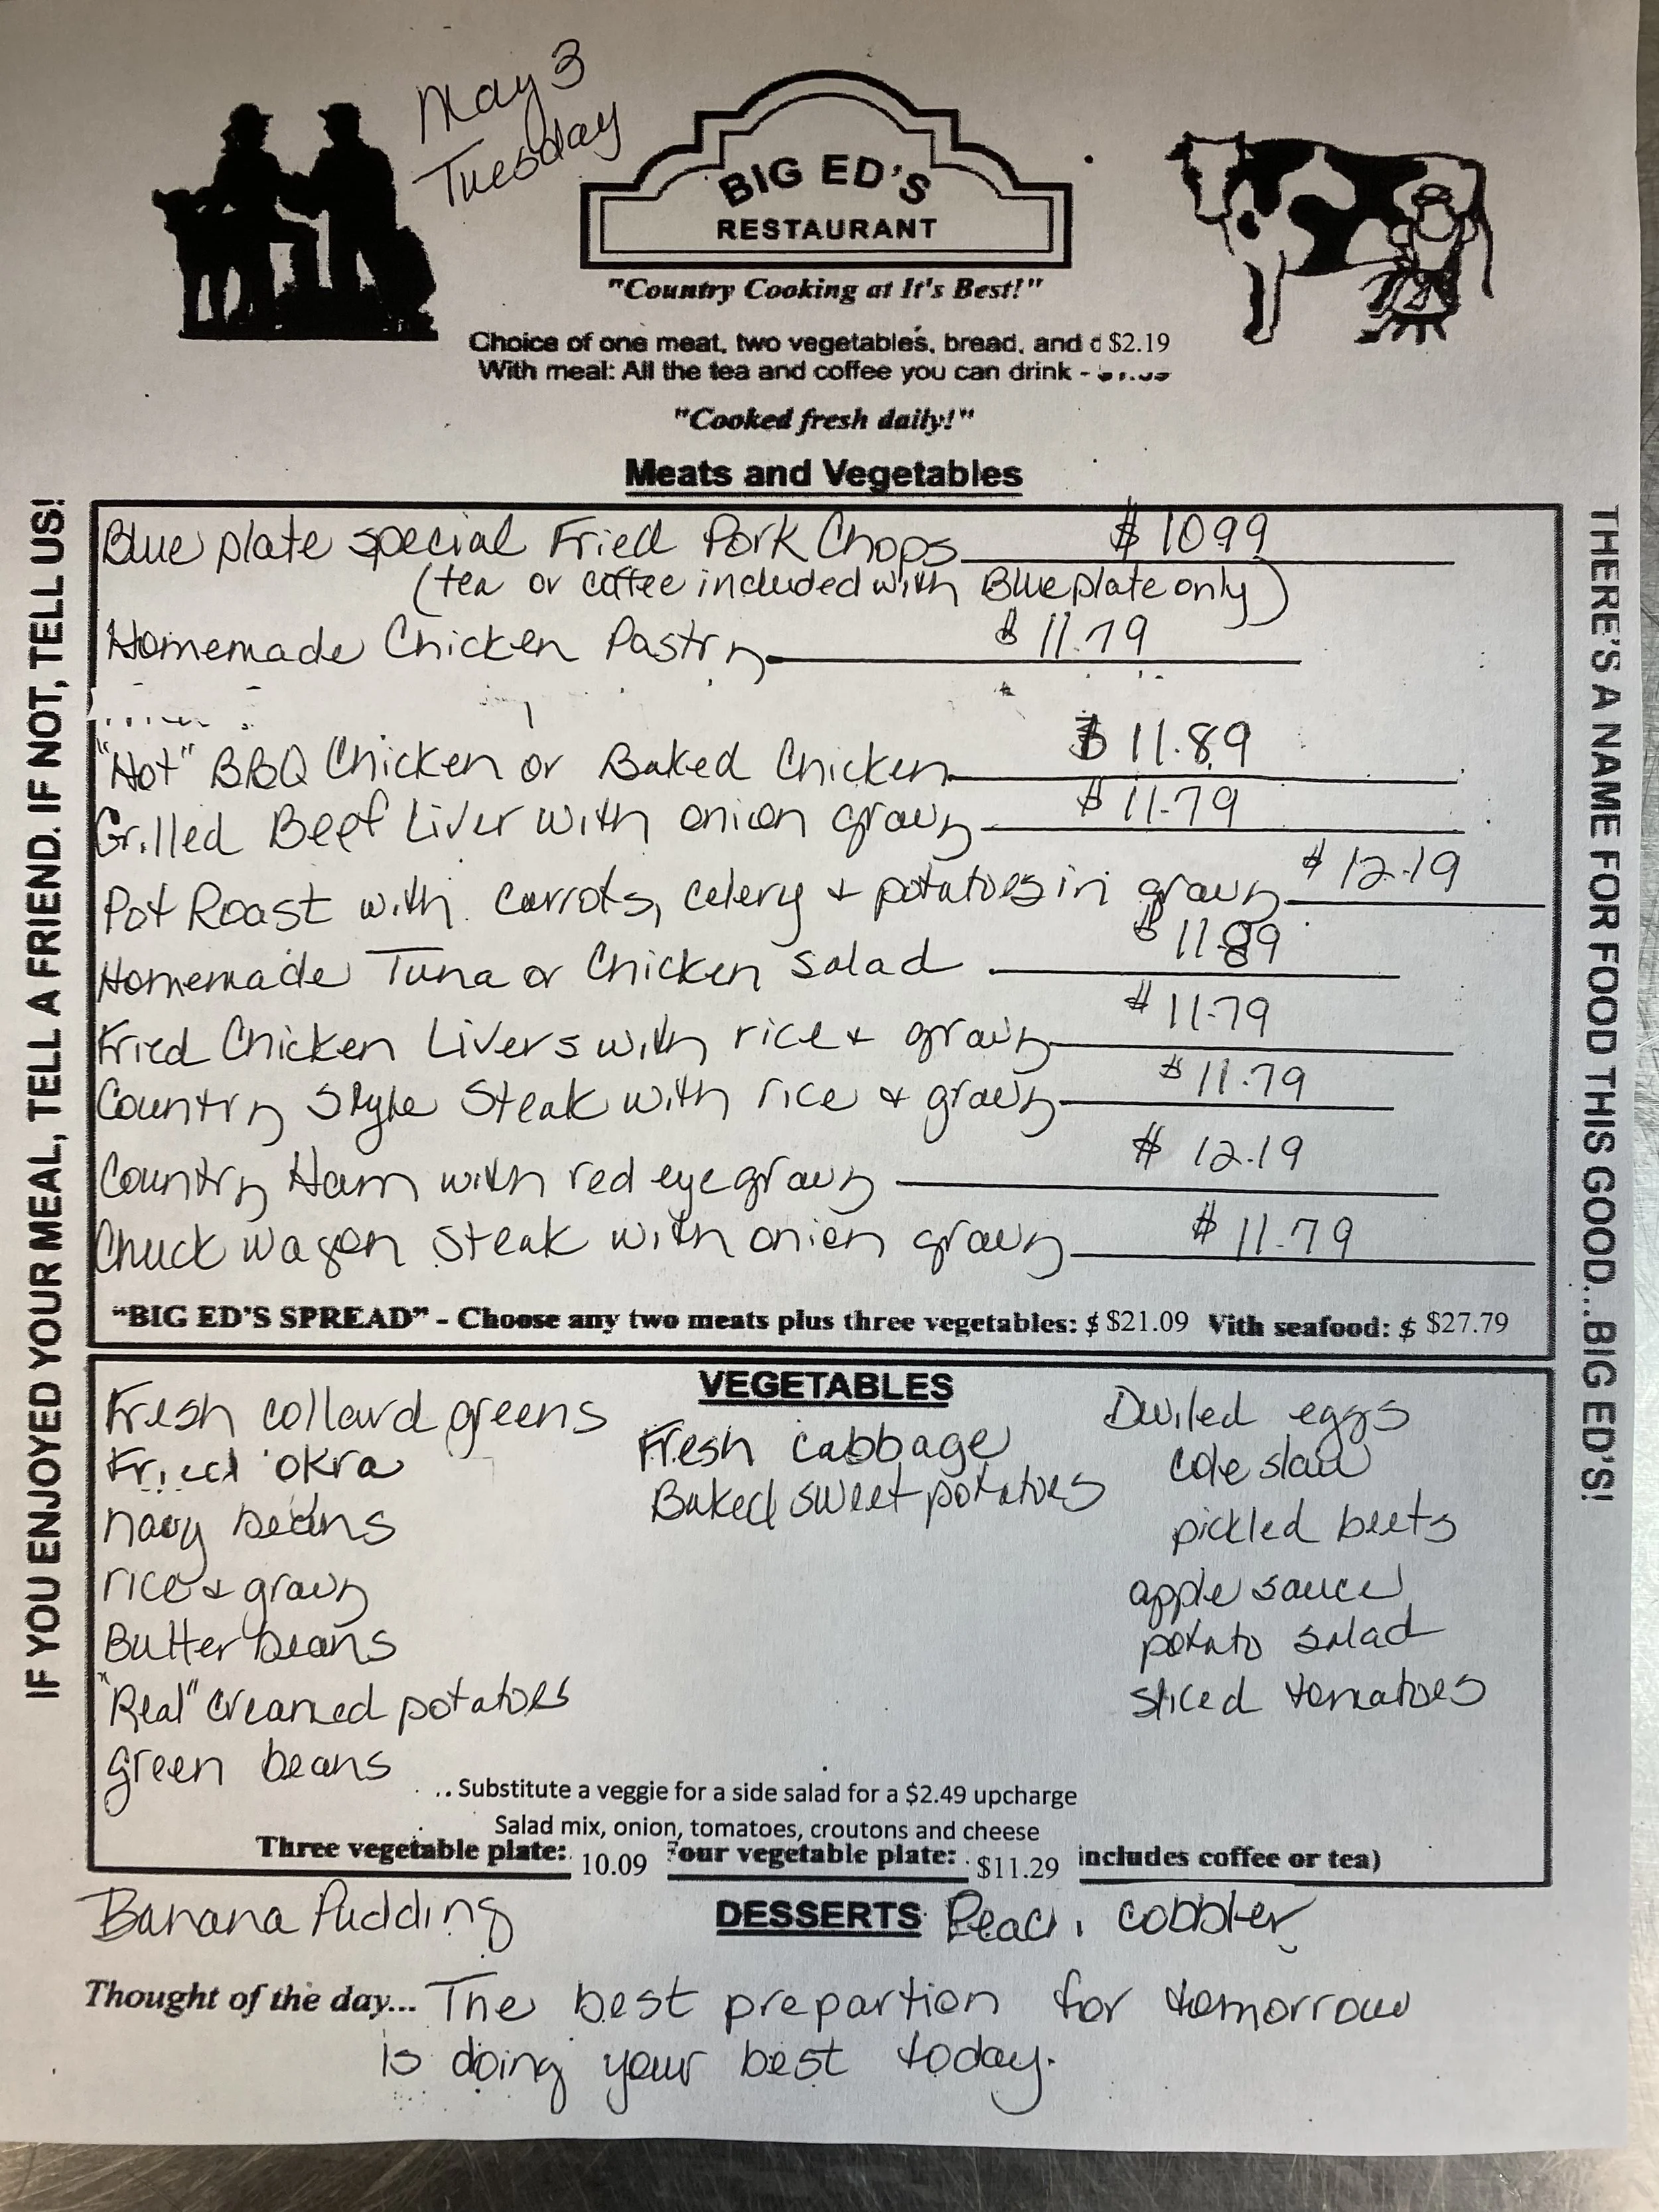 May 3
Tuesday
BIG ED'S
RESTAURANT
"Country Cooking at It's Best!"
Choice of one meat, two vegetables, bread, and $2.19
With meal: All the tea and coffee you can drink -
"Cooked fresh daily!"
Meats and Vegetables
Blue plate special Fried Pork Chops $ 10.99
(tea or coffee included with Blue plate only)
Homemade Chicken Pastry $ 11.79
"Hot" BBQ Chicken or Baked Chicken $ 11.89
Grilled Beef Liver with onion gravy $ 11.79
Pot Roast with carrots, celery + potatoes in gravy $ 12.19
Homemade Tuna or Chicken salad $ 11.89
Fried Chicken Livers with rice + gravy $ 11.79
Country Style Steak with rice + gravy $ 11.79
Country Ham with red eye gravy $ 12.19
Chuck wagon steak with onion gravy $ 11.79
"BIG ED'S SPREAD" - Choose any two meats plus three vegetables: $ $21.09 With seafood: $ $27.79
VEGETABLES
Fresh collard greens
Fried okra
navy beans
rice + gravy
Butter beans
"Real" creamed potatoes
green beans
Fresh cabbage
Baked sweet potatoes
Deviled eggs
cole slaw
pickled beets
apple sauce
potato salad
sliced tomatoes
.. Substitute a veggie for a side salad for a $2.49 upcharge
Salad mix, onion, tomatoes, croutons and cheese
Three vegetable plate: 10.09 Four vegetable plate: $11.29 includes coffee or tea)
Banana Pudding DESSERTS Peach cobbler
Thought of the day... The best prepartion for tomorrow
is doing your best today.
IF YOU ENJOYED YOUR MEAL, TELL A FRIEND. IF NOT, TELL US!
THERE'S A NAME FOR FOOD THIS GOOD...BIG ED'S!